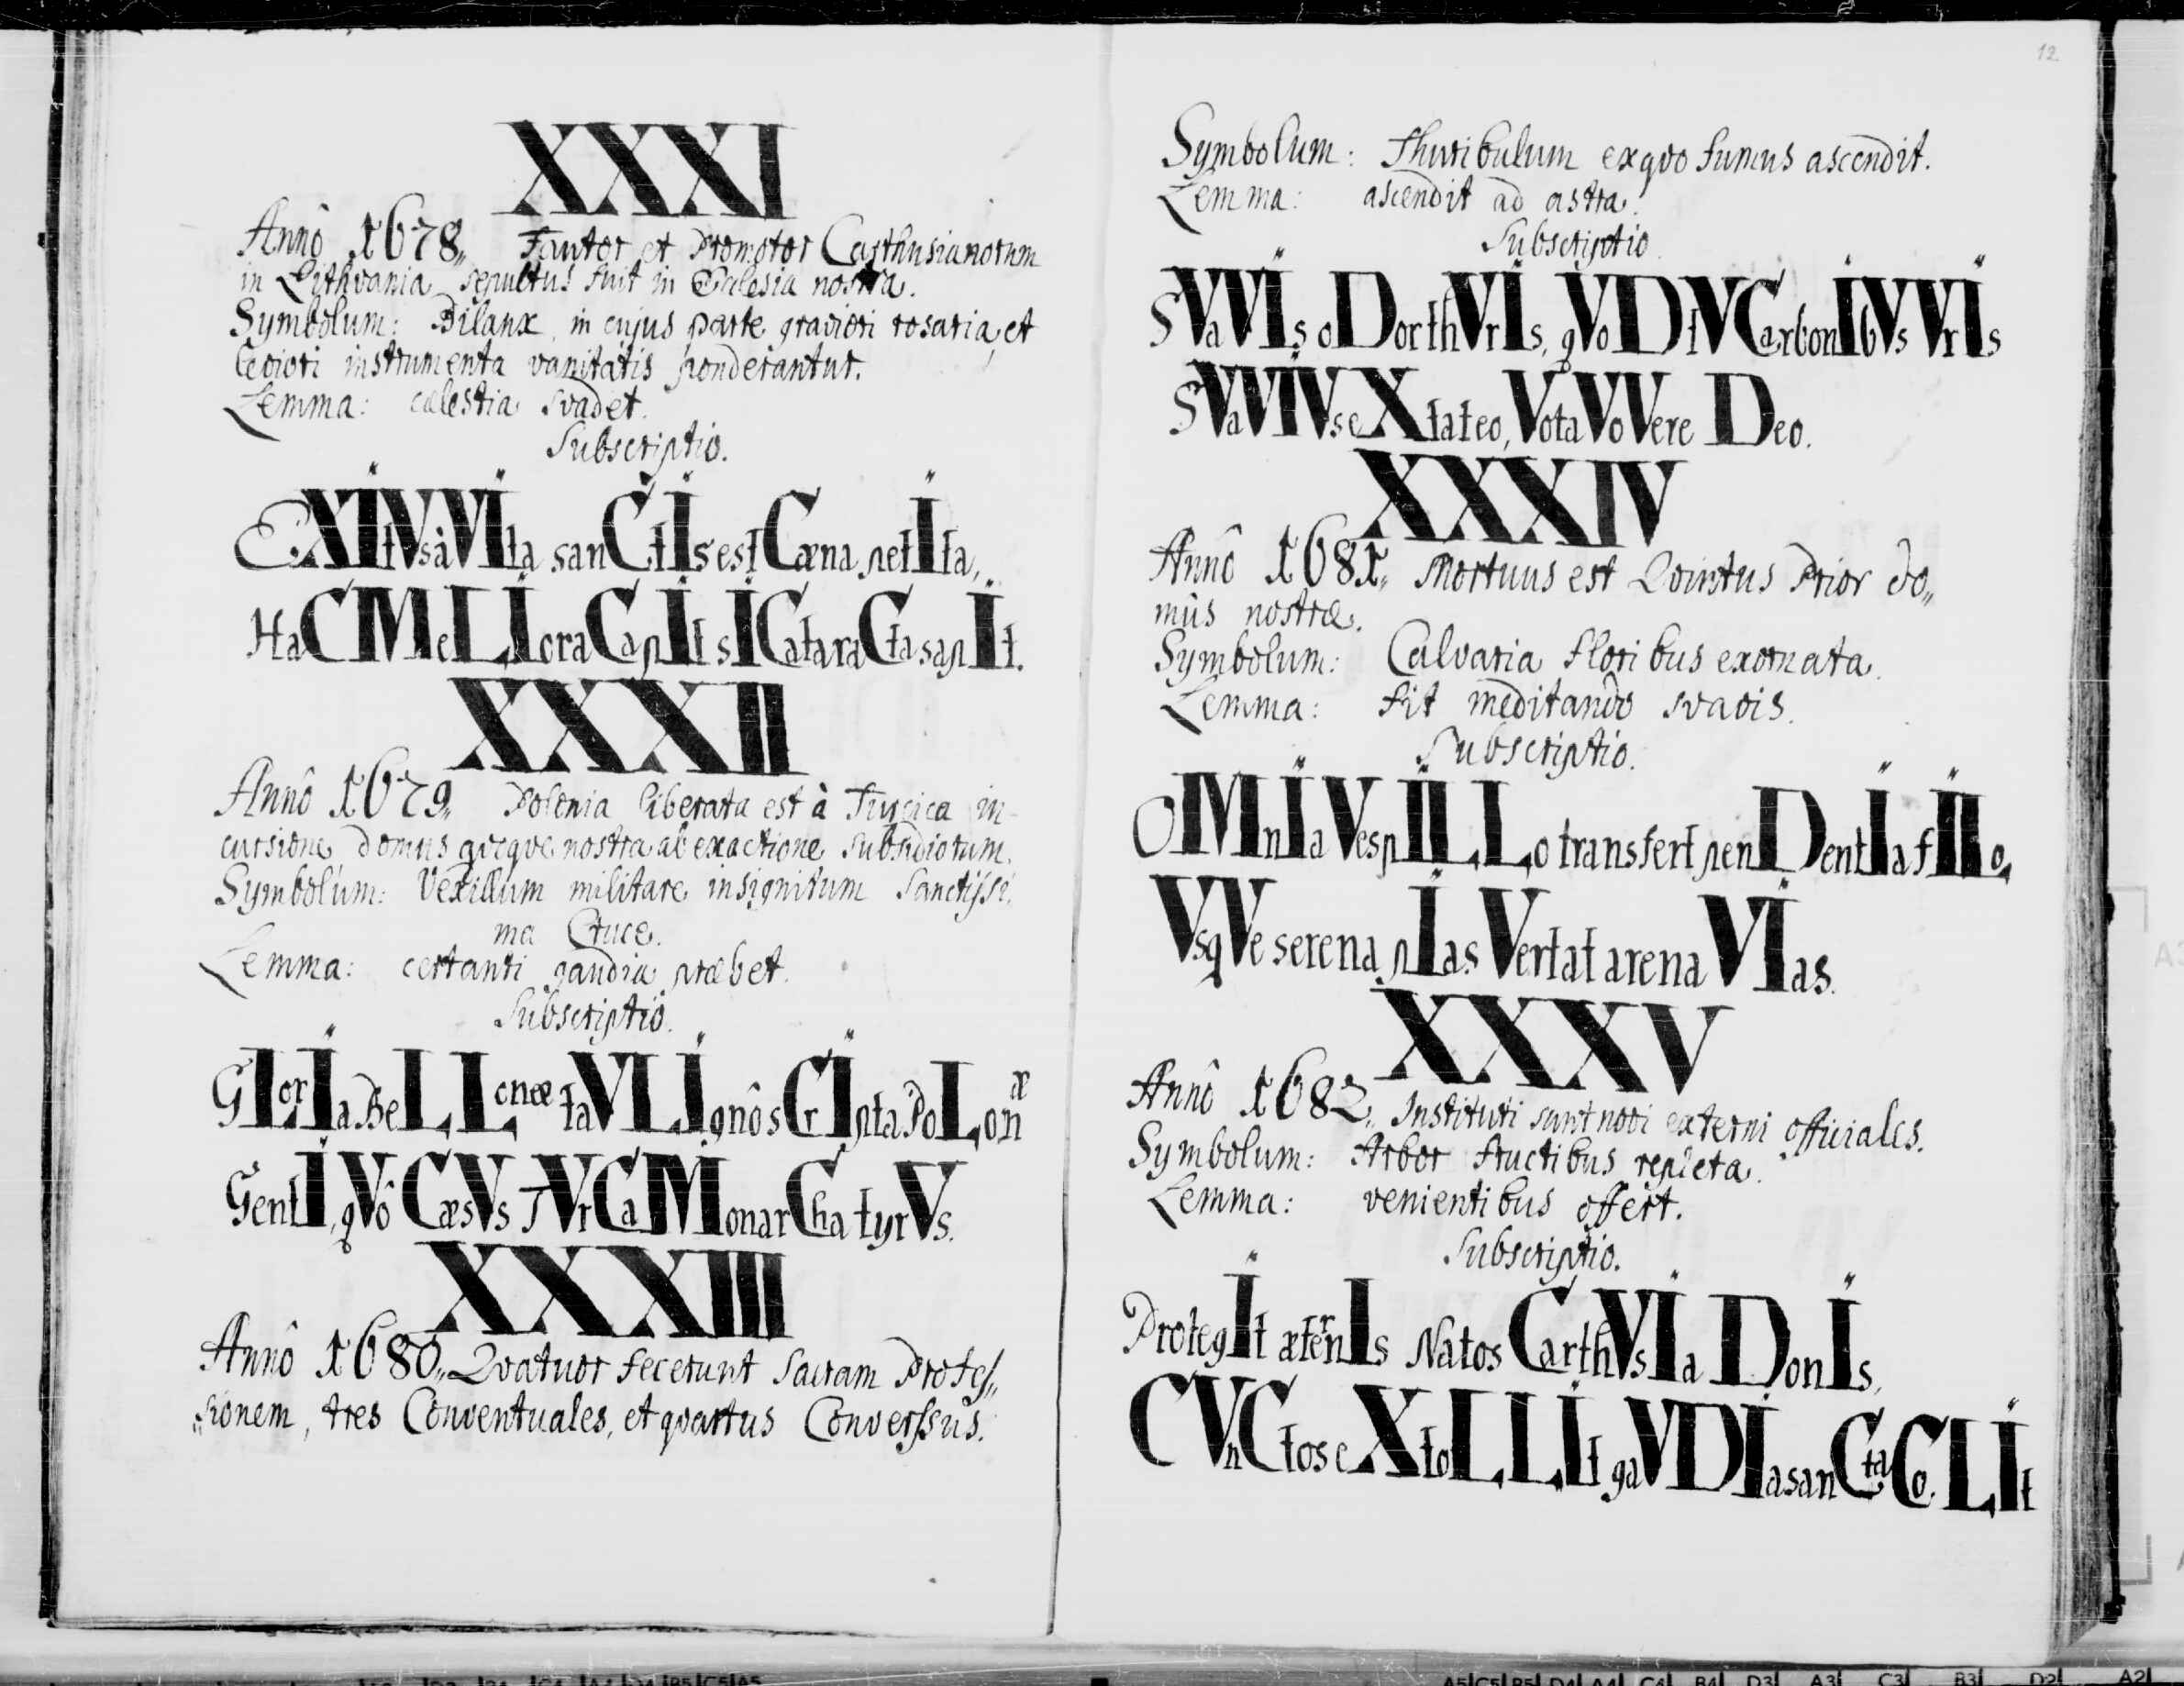 XXXI
Annô 1678,, Fautor et Promotor Carthusianorum
in Lithvania sepultus fuit in Ecclesia nostra.
Symbolum: Bilanx, in cujus parte graviori rosaria, et
leviori instrumenta vanitatis ponderantur.
Lemma: cælestia svadet.
Subscriptio.
EXItVsâVIta sanCtIs est Cæna petIta,
HaC MeLIora CapIt sI CataraCta sapIt.
XXXII
Annô 1679,, Polonia liberata est à Turcica in-
cursione, domus qvoqve nostra ab exactione subsidiorum.
Symbolum: Vexillum militare insignitum Sanctissi,
ma Cruce.
Lemma: certanti gaudia præbet.
Subscriptio.
GLorIa BeLLonæ taVLIgnôsCrIpta PoLonæ
GentI, qVô CæsVs TVrCa MonarCha tyrVs.
XXXIII
Annô 1680,, Qvatuor fecerunt sacram Profes,,
,,sionem, tres Conventuales, et qvartus Conversus.
12
Symbolum: Thuribulum ex qvo fumus ascendit.
Lemma: ascendit ad astra.
Subscriptio
SVaVIs oDor thVrIs, qVo DVM CarbonIbVs VrIs
SVaVIVs eXtat eo, Vota VoVere Deo.
XXXIV
Annô 1681,, Mortuus est Qvintus Prior do,,
mûs nostræ.
Symbolum: Calvaria floribus exornata.
Lemma: fit meditando svavis.
Subscriptio.
OMnIa VespILLo transfert penDentIa fILo,
VsqVe serena pIas Vertat arena VIas.
XXXV
Annô 1682,, Instituti sunt novi externi officiales.
Symbolum: Arbor fructibus repleta.
Lemma: venientibus offert.
Subscriptio.
ProtegIt æternIs Natos CarthVsIa DonIs,
CVnCtos eXtoLLIt gaVDIa sanCta CoLIt